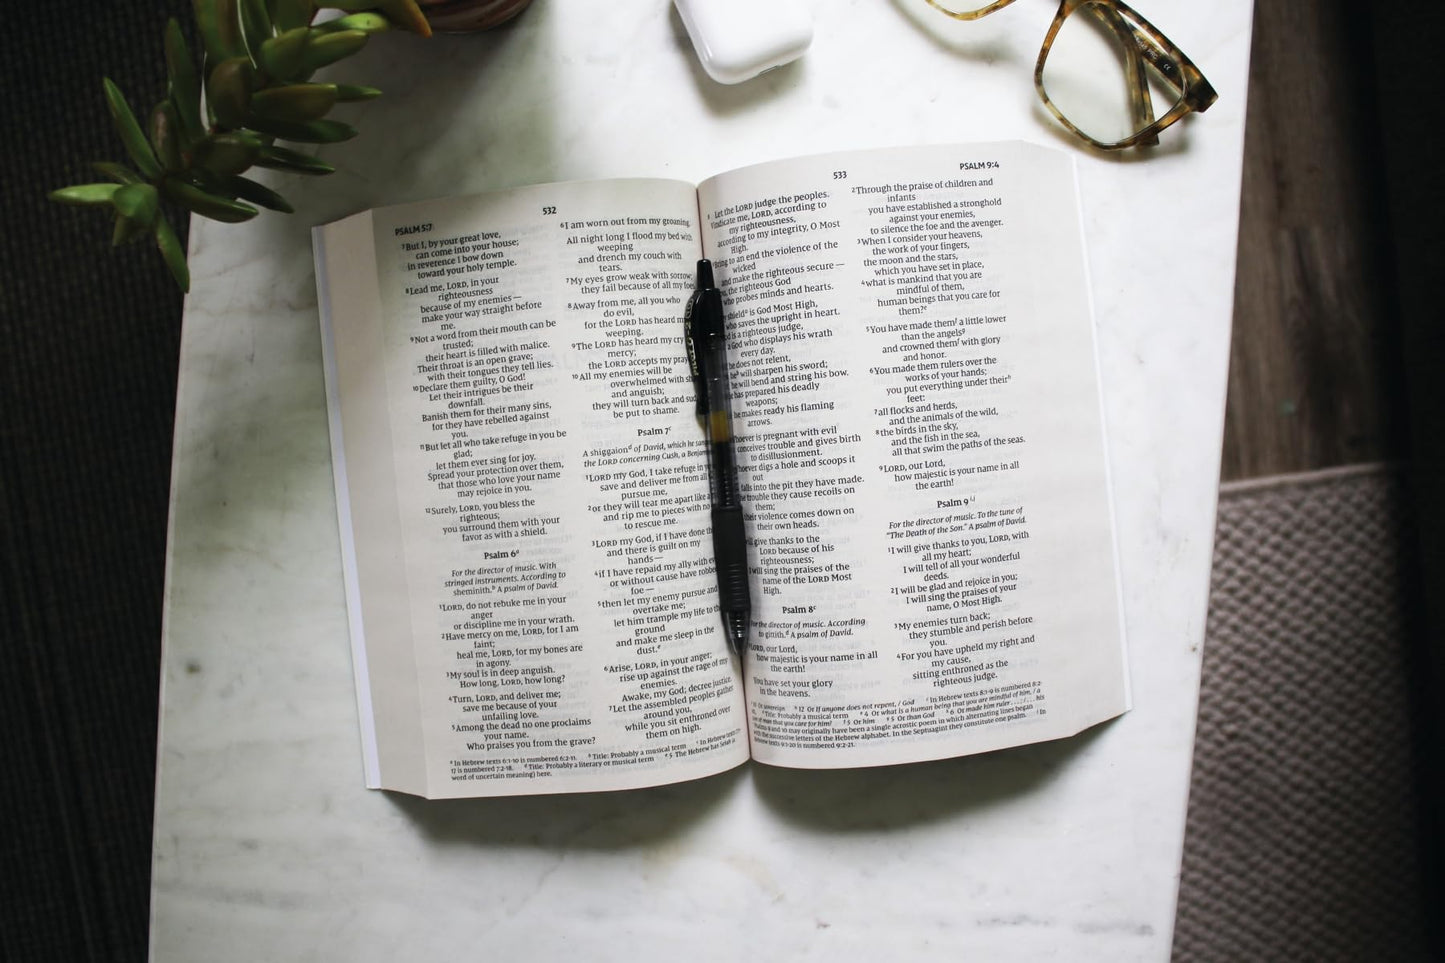 532
PSALM 5:7
⁷But I, by your great love,
can come into your house;
in reverence I bow down
toward your holy temple.
⁸Lead me, LORD, in your
righteousness
because of my enemies—
make your way straight before
me.
⁹Not a word from their mouth can be
trusted;
their heart is filled with malice.
Their throat is an open grave;
with their tongues they tell lies.
¹⁰Declare them guilty, O God!
Let their intrigues be their
downfall.
Banish them for their many sins,
for they have rebelled against
you.
¹¹But let all who take refuge in you be
glad;
let them ever sing for joy.
Spread your protection over them,
that those who love your name
may rejoice in you.
¹²Surely, LORD, you bless the
righteous;
you surround them with your
favor as with a shield.
Psalm 6ᵃ
For the director of music. With
stringed instruments. According to
sheminith.ᵇ A psalm of David.
¹LORD, do not rebuke me in your
anger
or discipline me in your wrath.
²Have mercy on me, LORD, for I am
faint;
heal me, LORD, for my bones are
in agony.
³My soul is in deep anguish.
How long, LORD, how long?
⁴Turn, LORD, and deliver me;
save me because of your
unfailing love.
⁵Among the dead no one proclaims
your name.
Who praises you from the grave?
⁶I am worn out from my groaning.
All night long I flood my bed with
weeping
and drench my couch with
tears.
⁷My eyes grow weak with sorrow;
they fail because of all my
⁸Away from me, all you who
do evil,
for the LORD has heard my
weeping.
⁹The LORD has heard my cry
mercy;
the LORD accepts my
¹⁰All my enemies will be
overwhelmed with
and anguish;
they will turn back and
be put to shame.
Psalm 7ᶜ
A shiggaionᵈ of David, which he sang
the LORD concerning Cush, a
¹LORD my God, I take refuge in
save and deliver me from all
pursue me,
²or they will tear me apart like a
and rip me to pieces with no
to rescue me.
³LORD my God, if I have done
and there is guilt on my
hands—
⁴if I have repaid my ally with
or without cause have
foe—
⁵then let my enemy pursue and
overtake me;
let him trample my life to the
ground
and make me sleep in the
dust.ᵉ
⁶Arise, LORD, in your anger;
rise up against the rage of my
enemies.
Awake, my God; decree justice.
⁷Let the assembled peoples gather
around you,
while you sit enthroned over
them on high.
ᵃ In Hebrew texts 6:1-10 is numbered 6:2-11. ᵇ Title: Probably a musical term ᶜ In Hebrew texts
17 is numbered 7:2-18. ᵈ Title: Probably a literary or musical term ᵉ 5 The Hebrew has Selah
word of uncertain meaning) here.
533
PSALM 9:4
⁸ Let the LORD judge the peoples.
Vindicate me, LORD, according to
my righteousness,
according to my integrity, O Most
High.
⁹Bring to an end the violence of the
wicked
and make the righteous secure—
the righteous God
who probes minds and hearts.
shieldᵃ is God Most High,
who saves the upright in heart.
is a righteous judge,
a God who displays his wrath
every day.
he does not relent,
will sharpen his sword;
he will bend and string his bow.
has prepared his deadly
weapons;
he makes ready his flaming
arrows.
Whoever is pregnant with evil
conceives trouble and gives birth
to disillusionment.
Whoever digs a hole and scoops it
out
falls into the pit they have made.
The trouble they cause recoils on
them;
their violence comes down on
their own heads.
will give thanks to the
LORD because of his
righteousness;
I will sing the praises of the
name of the LORD Most
High.
Psalm 8ᶜ
For the director of music. According
to gittith.ᵈ A psalm of David.
LORD, our Lord,
how majestic is your name in all
the earth!
You have set your glory
in the heavens.
²Through the praise of children and
infants
you have established a stronghold
against your enemies,
to silence the foe and the avenger.
³When I consider your heavens,
the work of your fingers,
the moon and the stars,
which you have set in place,
⁴what is mankind that you are
mindful of them,
human beings that you care for
them?ᵉ
⁵You have made themᶠ a little lower
than the angelsᵍ
and crowned themᶠ with glory
and honor.
⁶You made them rulers over the
works of your hands;
you put everything under theirʰ
feet:
⁷all flocks and herds,
and the animals of the wild,
⁸the birds in the sky,
and the fish in the sea,
all that swim the paths of the seas.
⁹LORD, our Lord,
how majestic is your name in all
the earth!
Psalm 9ⁱ,ʲ
For the director of music. To the tune of
"The Death of the Son." A psalm of David.
¹I will give thanks to you, LORD, with
all my heart;
I will tell of all your wonderful
deeds.
²I will be glad and rejoice in you;
I will sing the praises of your
name, O Most High.
³My enemies turn back;
they stumble and perish before
you.
⁴For you have upheld my right and
my cause,
sitting enthroned as the
righteous judge.
Or sovereign ᵇ 12 Or If anyone does not repent, / God ᶜ In Hebrew texts 8:1-9 is numbered 8:2-
ᵈ Title: Probably a musical term ᵉ 4 Or what is a human being that you are mindful of him, / a
son of man that you care for him? ᶠ 5 Or him ᵍ 5 Or than God ʰ 6 Or made him ruler . . . ; / . . . his
Psalms 9 and 10 may originally have been a single acrostic poem in which alternating lines began
with the successive letters of the Hebrew alphabet. In the Septuagint they constitute one psalm. ʲ In
Hebrew texts 9:1-20 is numbered 9:2-21.